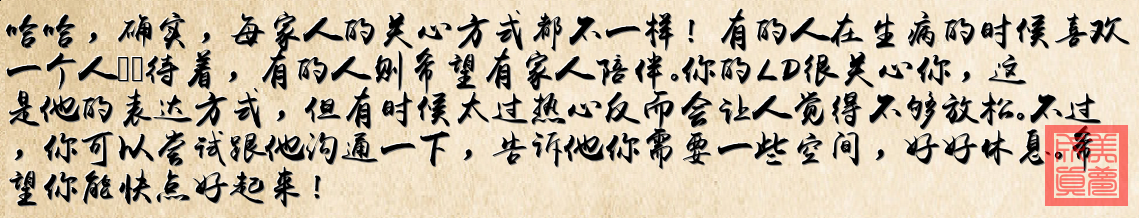 哈哈，确实，每家人的关心方式都不一样！有的人在生病的时候喜欢
一个人□□待着，有的人则希望有家人陪伴。你的LD很关心你，这
是他的表达方式，但有时候太过热心反而会让人觉得不够放松。不过
，你可以尝试跟他沟通一下，告诉他你需要一些空间，好好休息。希
望你能快点好起来！
美梦成真